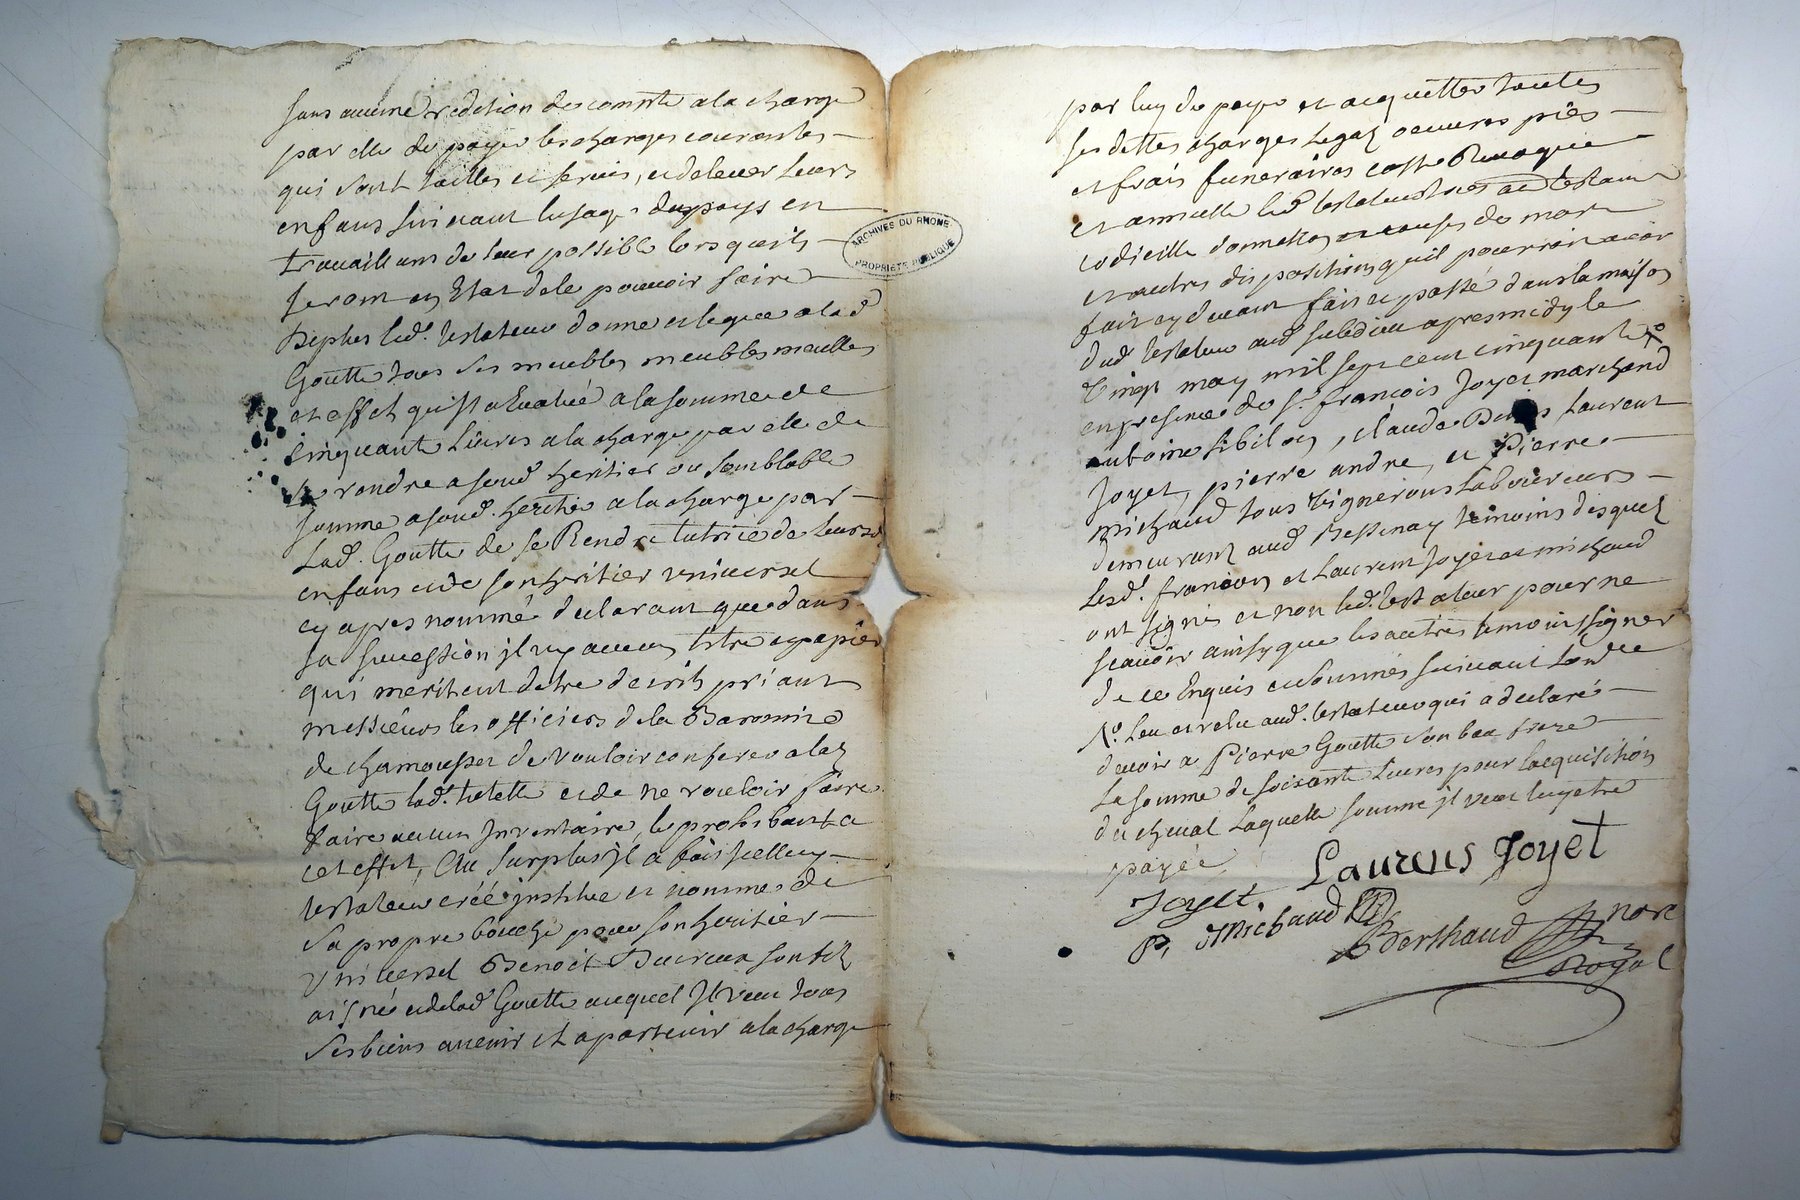 sans aucune redition de compte a la charge
par elle de payer les charges courantes
qui sont tailles et servis, et delever leurs
enfans suivant lusage du pays en
travaillant de leur possible lors quils
seront en Etat de le pouvoir faire
De plus led. testateur donne et legue a lad.
Goutte tous ses meubles meubles meublans
et effet quil a Evalué a la somme de
Cinquante Livres a la charge par elle de
rendre a sond heritier ou semblable
somme a sond. heritier a la charge par
Lad. Goutte de se Rendre tutrice de leursd
enfans et de son heritier universel
cy apres nommé declarant que dans
sa succession jl ny a aucun titre ny papier
qui meritent detre decrit priant
messieurs les officiers de la Baronnie
de chamousset de vouloir conferer a lad
Goutte lad. tutelle et de ne vouloir faire
faire aucun Jnventaire, le prohibant a
cet effet, Au surplus jl a fait jcelluy
testateur créé jnstitue et nomme de
sa propre bouche pour son heritier
Universel Benoit Ducreux son fils
aisné et de lad Goutte auquel Jl veut tous
ses biens avenir et apartenir a la charge
ARCHIVES DU RHONE
PROPRIÉTÉ PUBLIQUE
par luy de payer et acquitter toutes
ses dettes charges legat oeuvres pies
et frais funeraires casse Revoque
et annulle led. testateur tous autres testament
codicille donnation a cause de mort
et autres dispositions quil pourroit avoir
fait cy devant fait et passé dans la maison
dud testateur aud susd lieu apres midy le
Vingt may mil sept cent cinquante
en presence de Sr. françois Joyet marchand
antoine sibilon, claude Laurent
Joyet, pierre andre, et Pierre
michaud tous Vignerons Laboureurs
demeurant aud Bessenay temoins desquel
Lesd. françois et Laurent Joyet et michaud
ont signé et non led. testateur pour ne
scavoir ainsy que les autres temoins signer
de ce Enquis et sommés suivant Lordce
No. Leu et relu aud. testateur qui a declaré
devoir a Pierre Goutte son beau frere
La somme de soixante Livres pour lacquisition
du cheval Laquelle somme jl veut luy etre
payée
Laurens Joyet
Joyet
P. Michaud
Berthaud nore
Royal